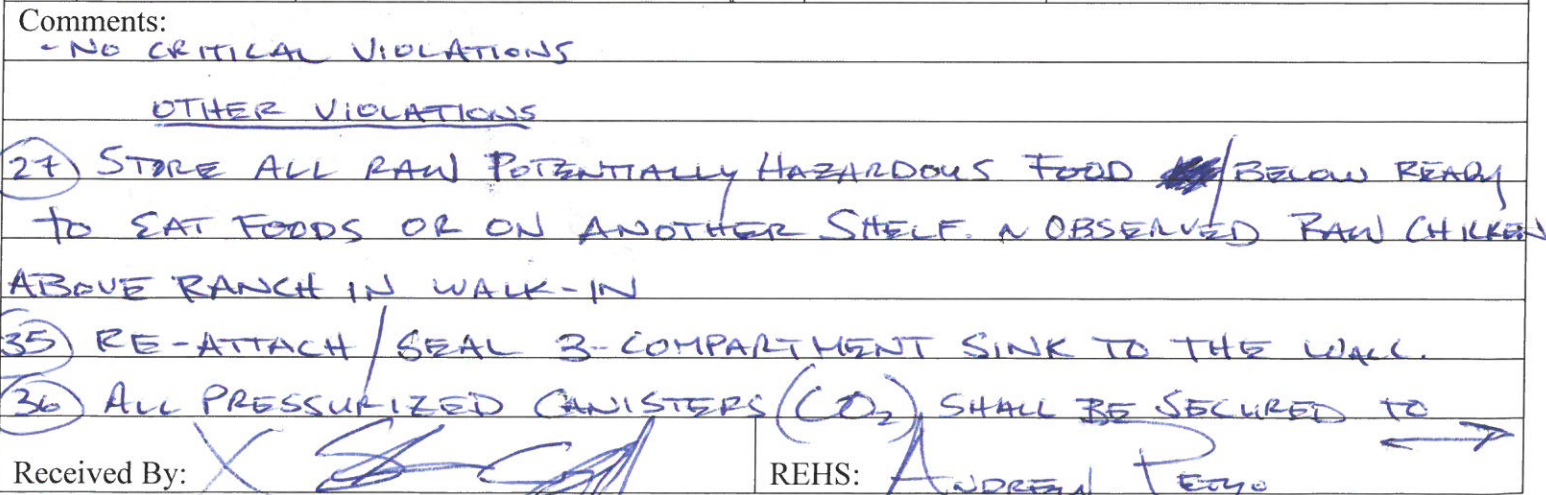 Comments:
- NO CRITICAL VIOLATIONS
OTHER VIOLATIONS
27) STORE ALL RAW POTENTIALLY HAZARDOUS FOOD BELOW READY
TO EAT FOODS OR ON ANOTHER SHELF. ~ OBSERVED RAW CHICKEN
ABOVE RANCH IN WALK-IN
35) RE-ATTACH/SEAL 3-COMPARTMENT SINK TO THE WALL.
36) ALL PRESSURIZED CANISTERS (CO₂) SHALL BE SECURED TO →
Received By: X
REHS: ANDREW